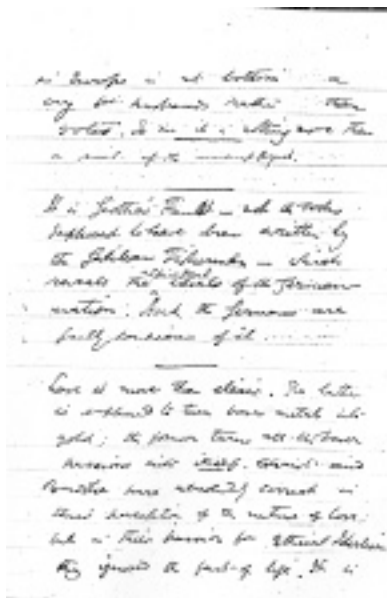 in Europe is at bottom a
cry for husbands rather than
votes. To me it is nothing more than
a riot of the unemployed.
It is Goethe's Faust — not the books
supposed to have been written by
the Galilean Fishermen — which
reveals the spiritual ideals of the German
nation. And the Germans are
fully conscious of it.......
Love is more than elixir. The latter
is supposed to turn baser metals into
gold; the former turns all the baser
passions into itself. Christ and
Buddha were absolutely correct in
their perception of the nature of love;
but in their passion for ethical idealism
they ignored the facts of life. It is